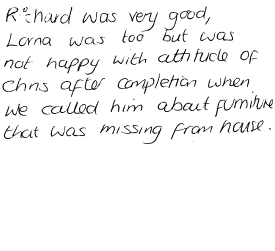 Richard was very good,
Lorna was too but was
not happy with attitude of
Chris after completion when
we called him about furniture
that was missing from house.